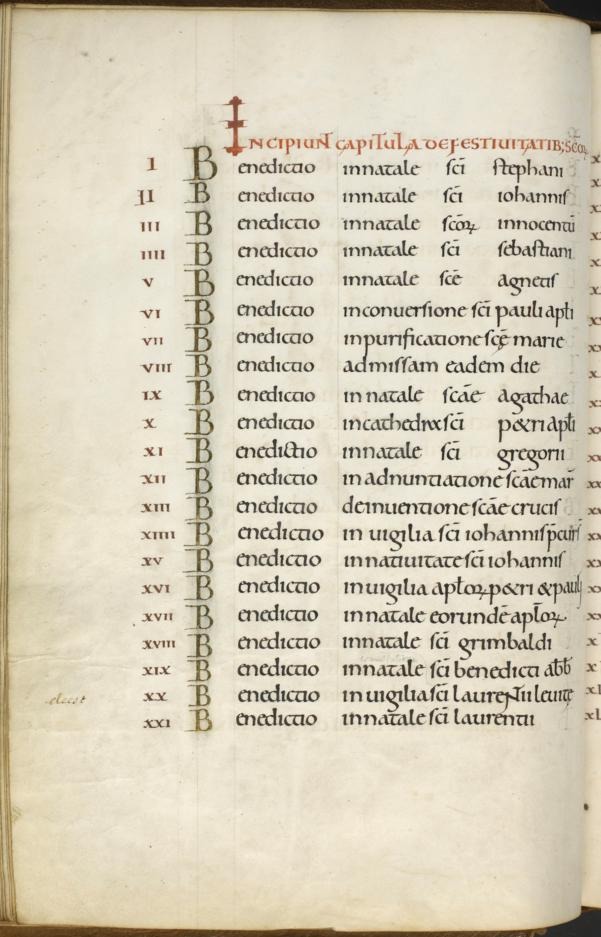 INCIPIUNT CAPITULA DE FESTIUITATIB; SCOꝝ
I Benedictio in natale sc̄i stephani
II Benedictio in natale sc̄i iohannis
III Benedictio in natale sc̄oꝝ innocentū
IIII Benedictio in natale sc̄i sebastiani
V Benedictio in natale sc̄e agnetis
VI Benedictio in conuersione sc̄i pauli apl̄i
VII Benedictio in purificatione sc̄ę marie
VIII Benedictio ad missam eadem die
IX Benedictio in natale sc̄ae agathae
X Benedictio in cathedra sc̄i petri apl̄i
XI Benedictio in natale sc̄i gregorii
XII Benedictio in adnuntiatione sc̄ae mar̄
XIII Benedictio de inuentione sc̄ae crucis
XIIII Benedictio in uigilia sc̄i iohannis p̄curs̄
XV Benedictio in natiuitate sc̄i iohannis
XVI Benedictio in uigilia apl̄oꝝ petri & pauli
XVII Benedictio in natale eorundē apl̄oꝝ
XVIII Benedictio in natale sc̄i grimbaldi
XIX Benedictio in natale sc̄i benedicti abb̄
deest XX Benedictio in uigilia sc̄i laurentii leuitę
XXI Benedictio in natale sc̄i laurentii